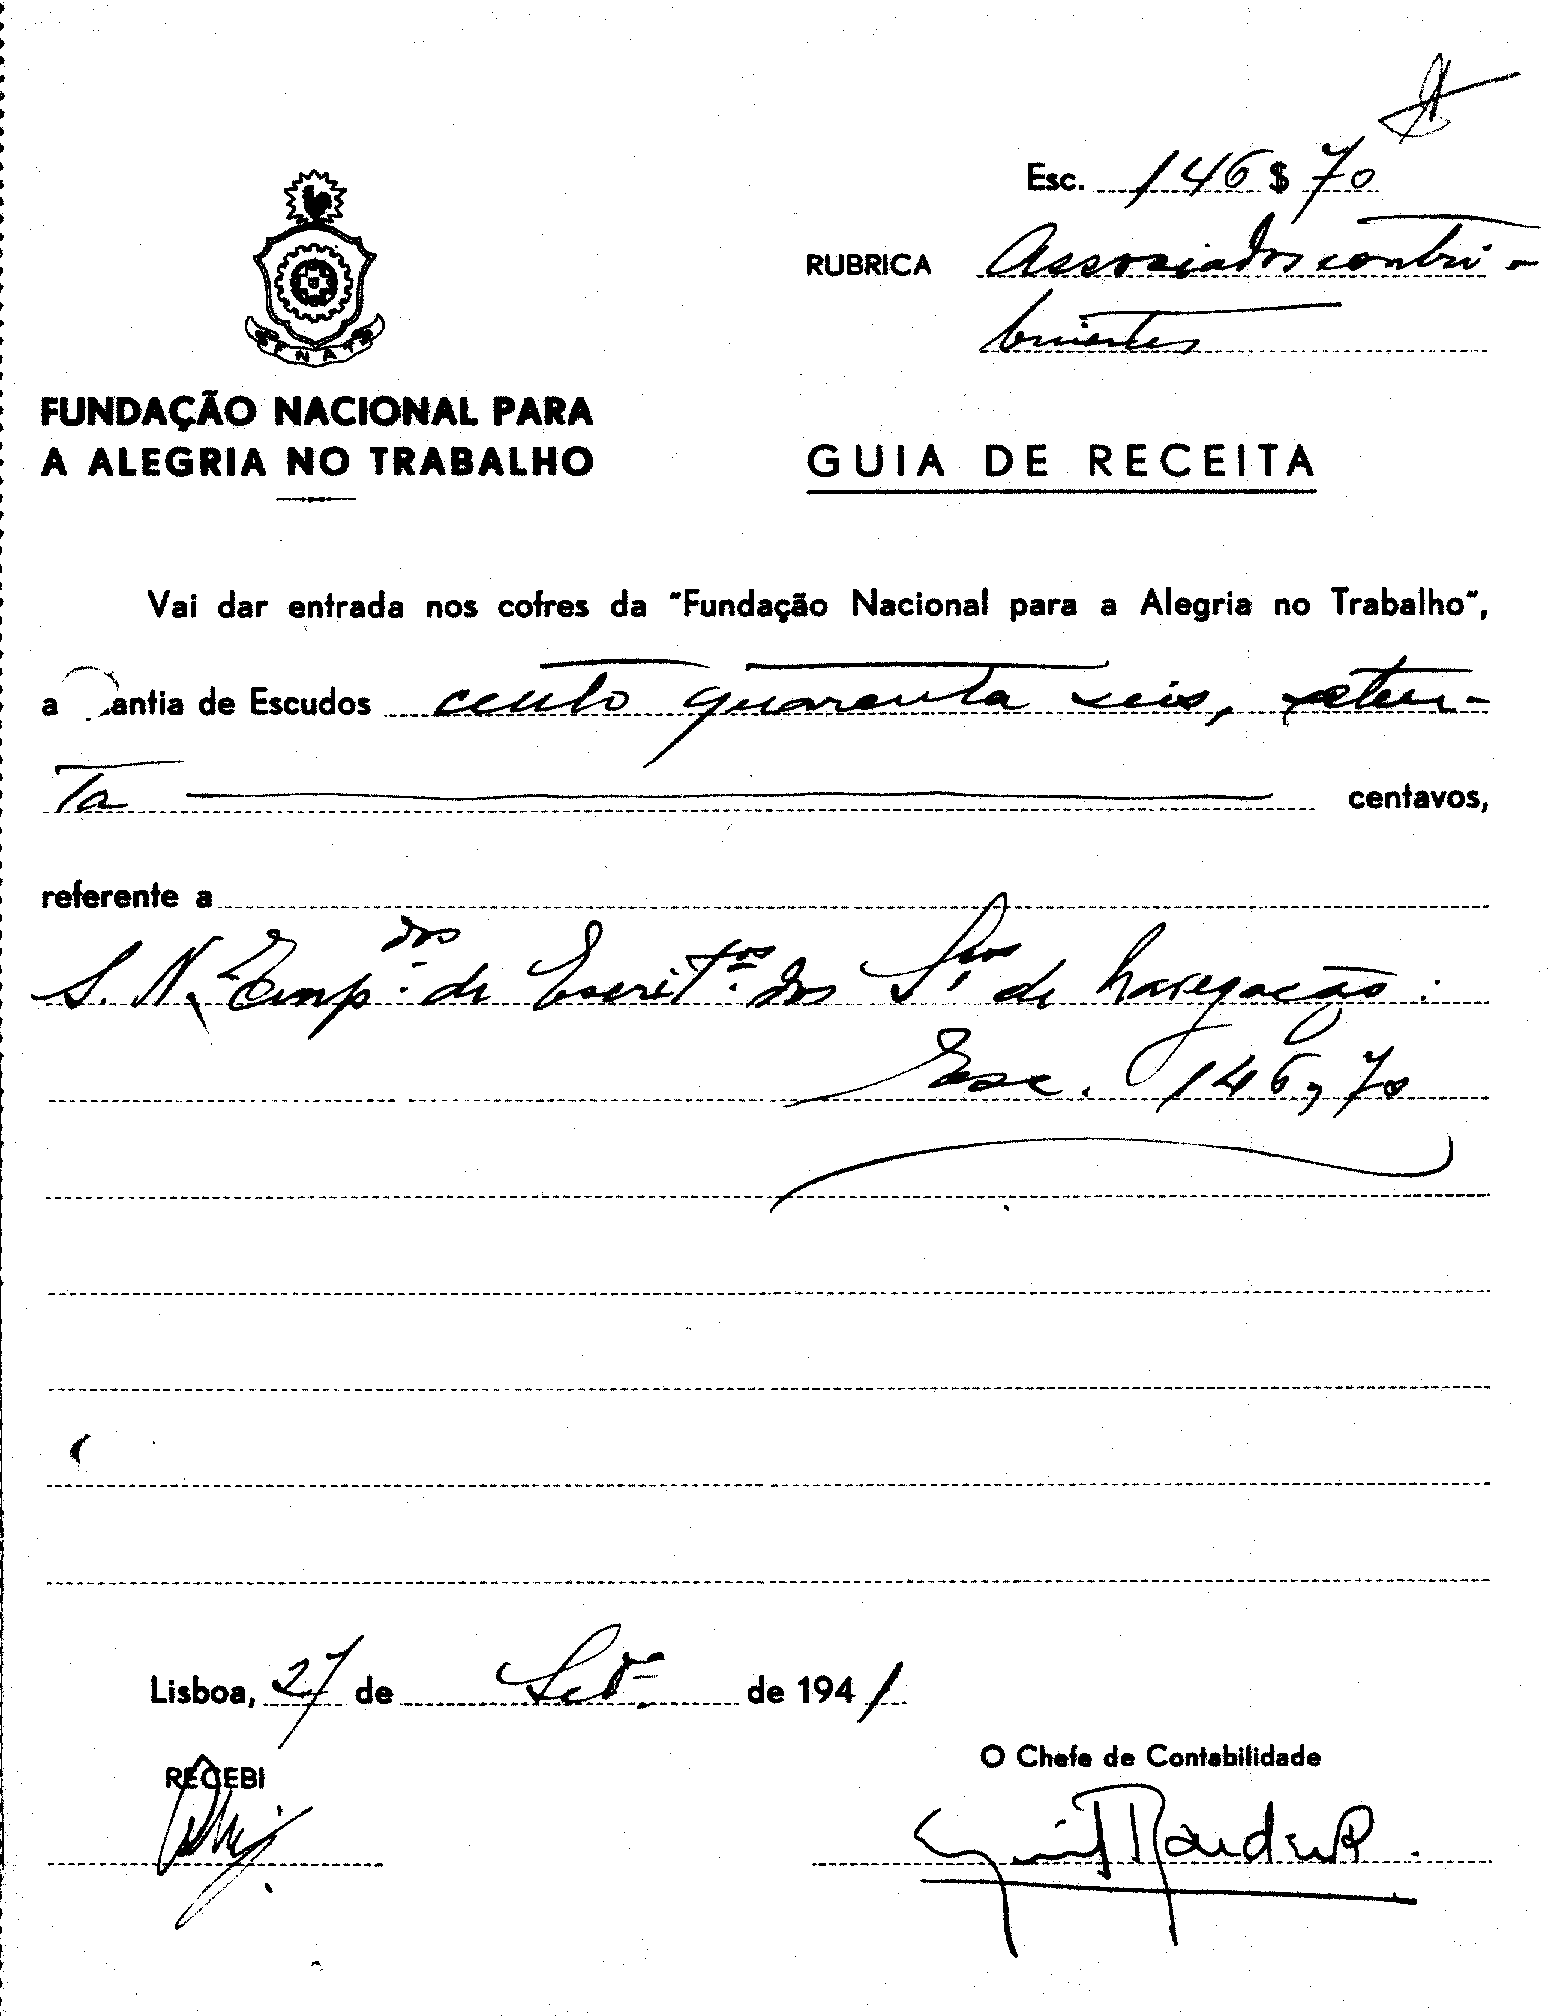 Esc. 146 $ 70
RUBRICA Associados contri-
buintes
FENAT
FUNDAÇÃO NACIONAL PARA
A ALEGRIA NO TRABALHO
GUIA DE RECEITA
Vai dar entrada nos cofres da "Fundação Nacional para a Alegria no Trabalho",
a antia de Escudos cento quarenta seis, seten-
ta centavos,
referente a
S. N. Emp.dos de Escrit.os dos S.ços de Navegação.
Esc. 146,70
Lisboa, 27 de Set.o de 1941
RECEBI
O Chefe de Contabilidade